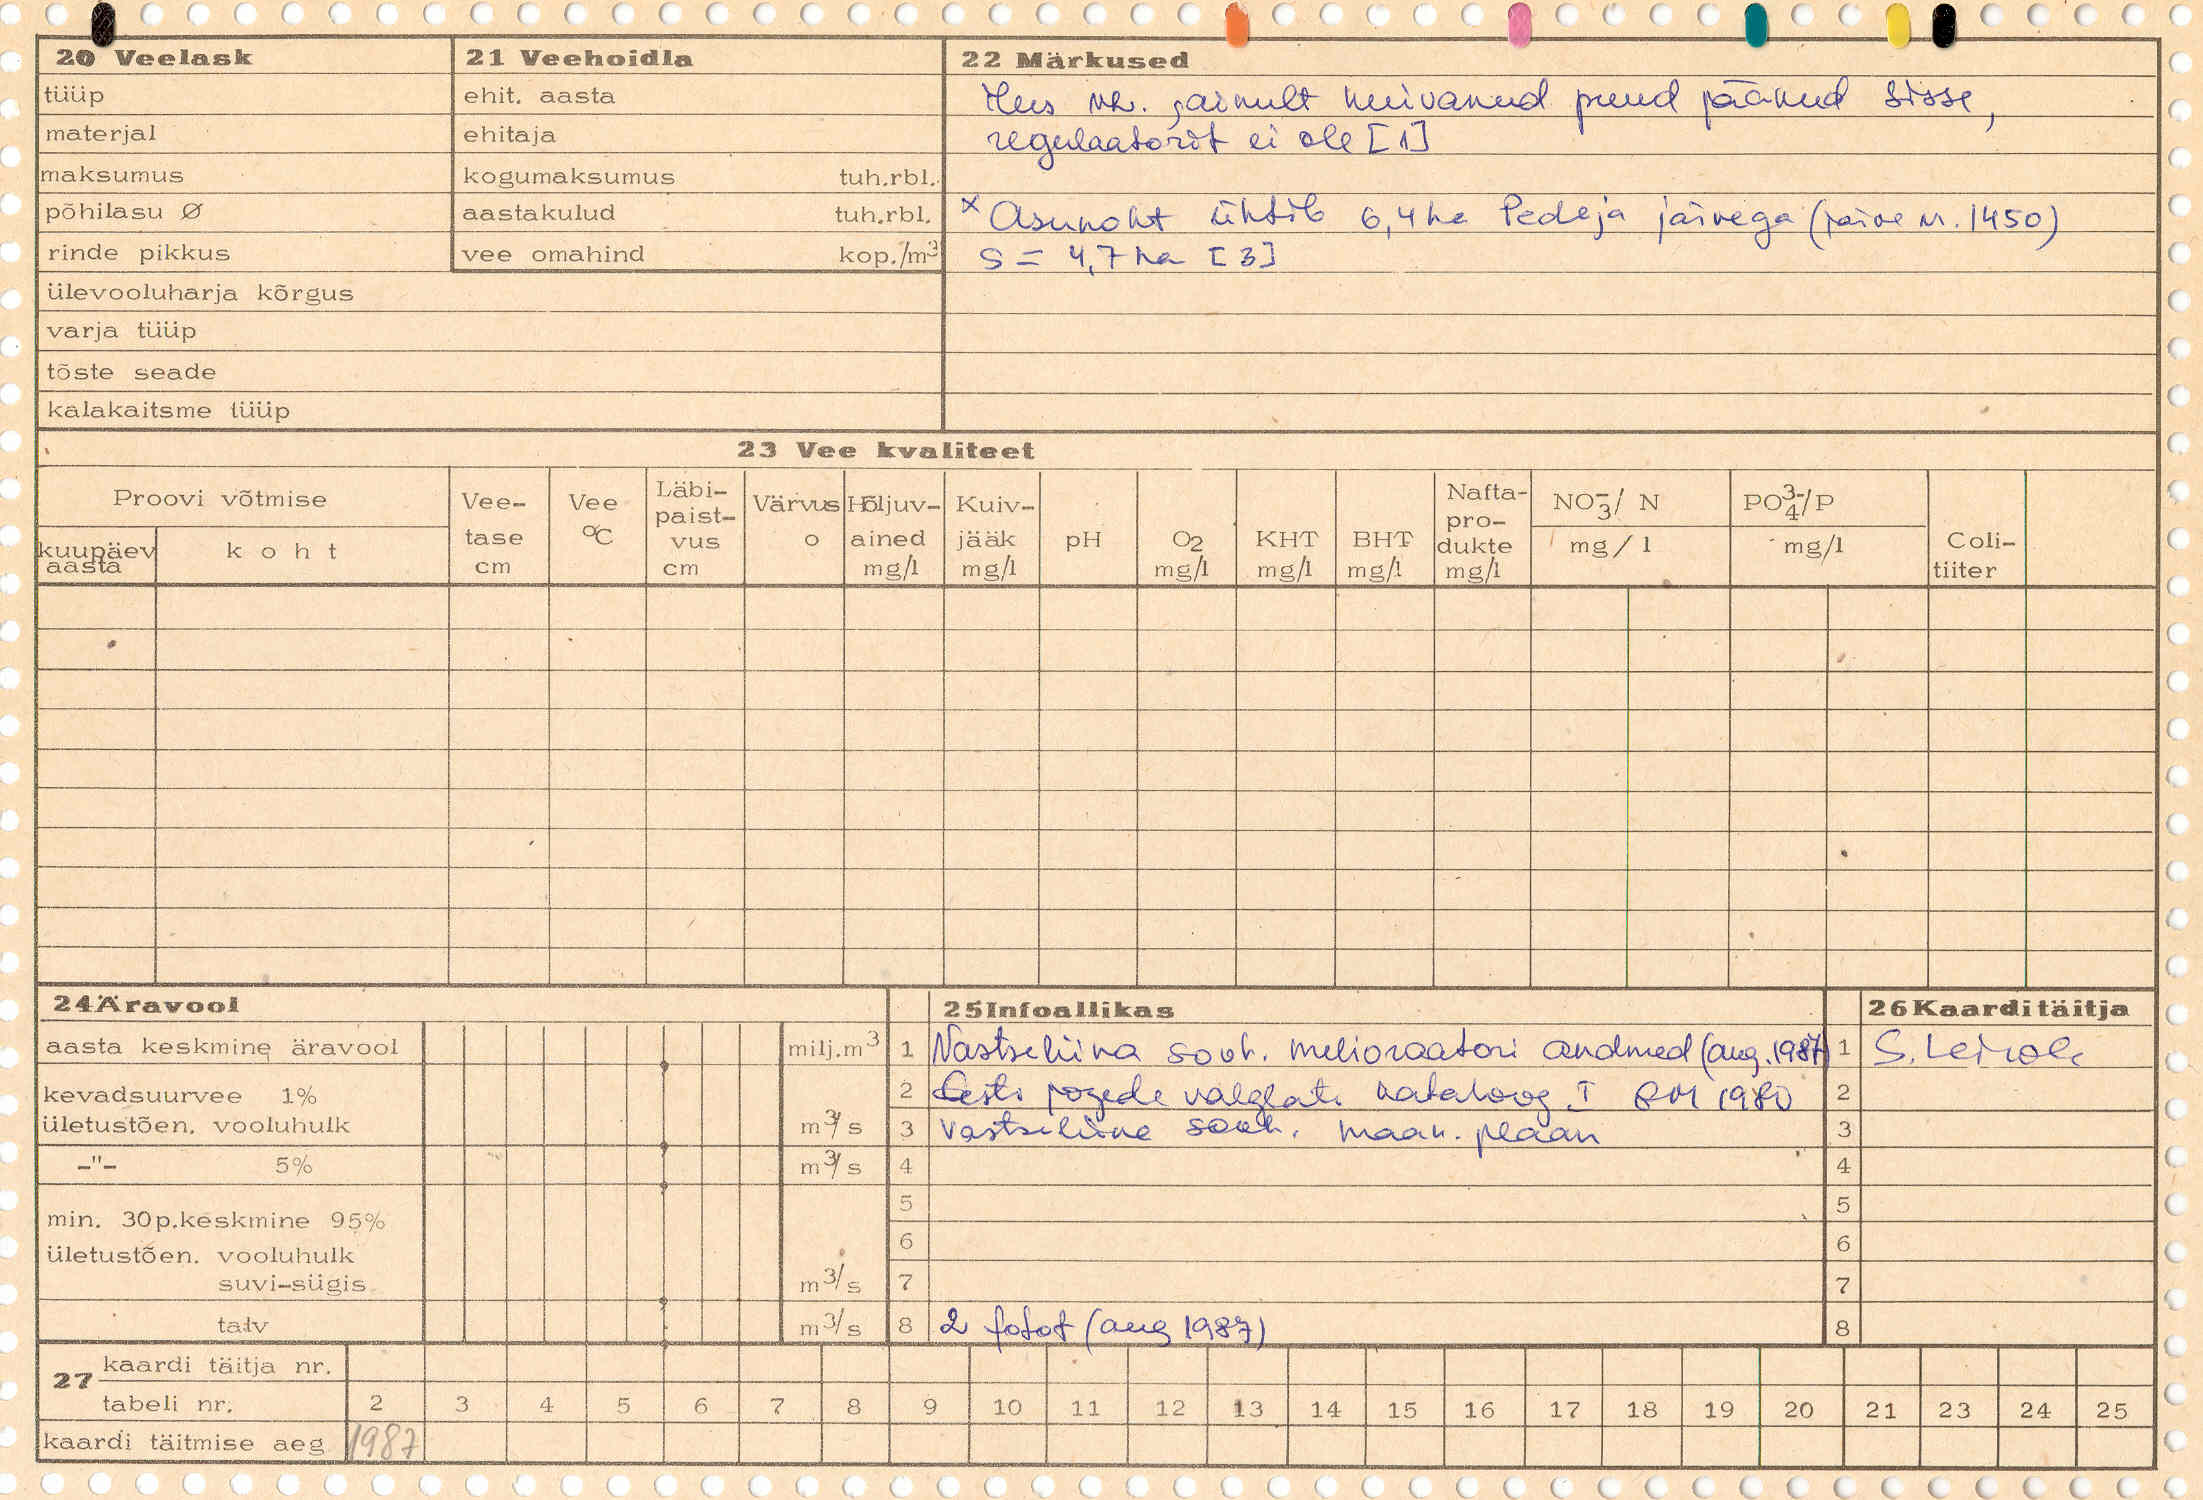 20 Veelask
tüüp
materjal
maksumus
põhilasu Ø
rinde pikkus
ülevooluharja kõrgus
varja tüüp
tõste seade
kalakaitsme tüüp
21 Veehoidla
ehit. aasta
ehitaja
kogumaksumus tuh.rbl.
aastakulud tuh.rbl.
vee omahind kop./m³
22 Märkused
Ilus vh. ainult kuivanud puud jäänud sisse,
regulaatorit ei ole [1]
x Asukoht ühtib 6,4 ha Pedeja järvega (järve nr. 1450)
S = 4,7 ha [3]
23 Vee kvaliteet
Proovi võtmise
kuupäev aasta
koht
Vee-tase cm
Vee °C
Läbi-paist-vus cm
Värvus o
Hõljuv-ained mg/l
Kuiv-jääk mg/l
pH
O2 mg/l
KHT mg/l
BHT mg/l
Nafta-pro-dukte mg/l
NO3-/ N mg/l
PO4 3-/P mg/l
Coli-tiiter
24 Äravool
aasta keskmine äravool milj.m³
kevadsuurvee 1%
ületustõen. vooluhulk m³/s
-"- 5% m³/s
min. 30p.keskmine 95%
ületustõen. vooluhulk
suvi-sügis m³/s
talv m³/s
25 Infoallikas
1 Vastseliina sovh. melioraatori andmed (aug. 1987)
2 Eesti jõgede valglate kataloog I 1980
3 Vastseliina sovh. maak. plaan
4
5
6
7
8 2 fotot (aug 1987)
26 Kaarditäitja
1 S.
2
3
4
5
6
7
8
27 kaardi täitja nr.
tabeli nr. 2 3 4 5 6 7 8 9 10 11 12 13 14 15 16 17 18 19 20 21 23 24 25
kaardi täitmise aeg 1987